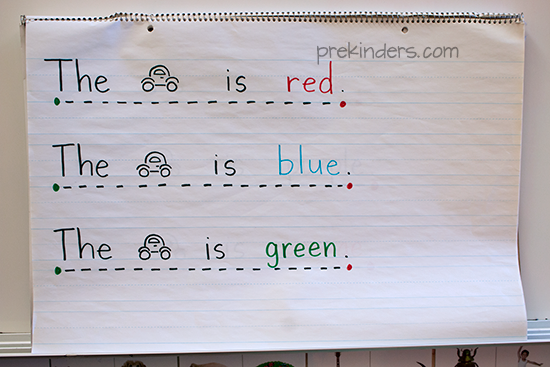 prekinders.com
The is red.
The is blue.
The is green.